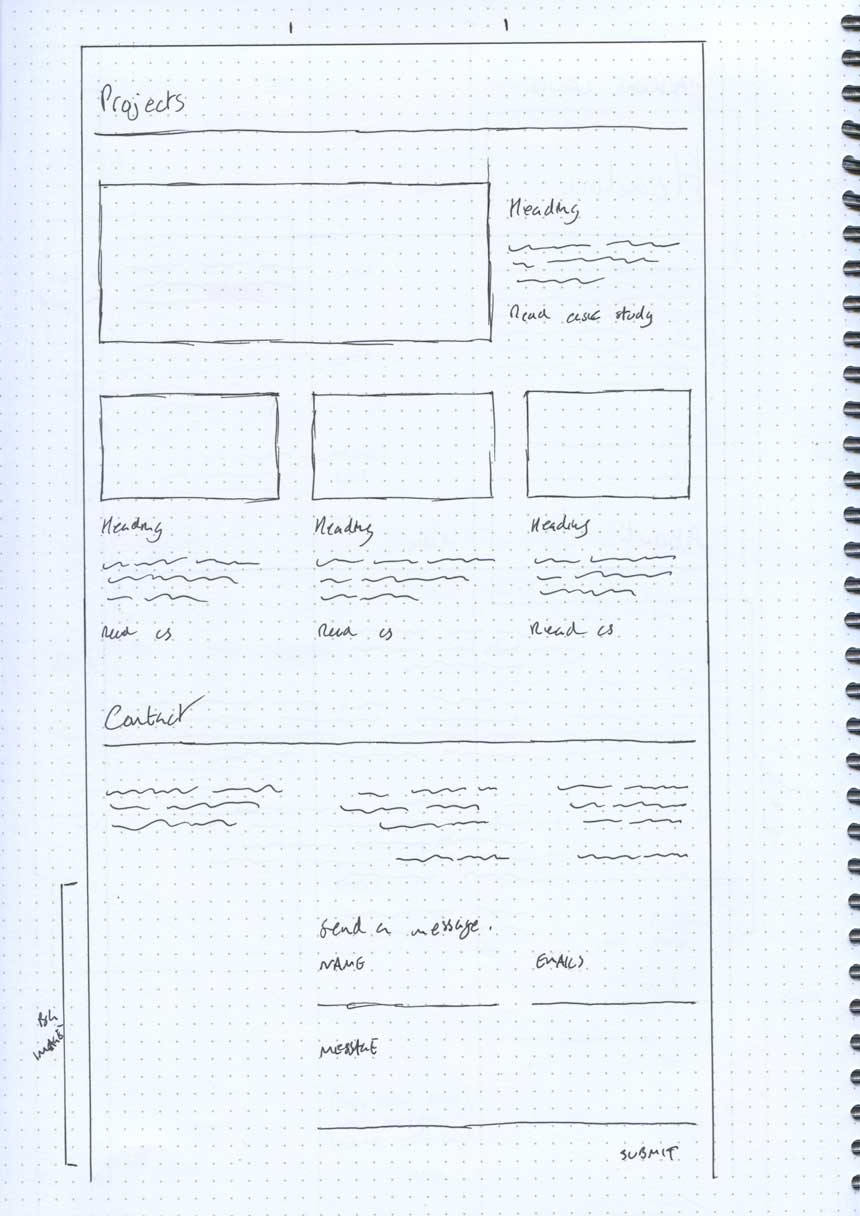 Projects
Heading
Read case study
Heading Heading Heading
Read cs Read cs Read cs
Contact
Send a message.
NAME EMAIL
MESSAGE
SUBMIT